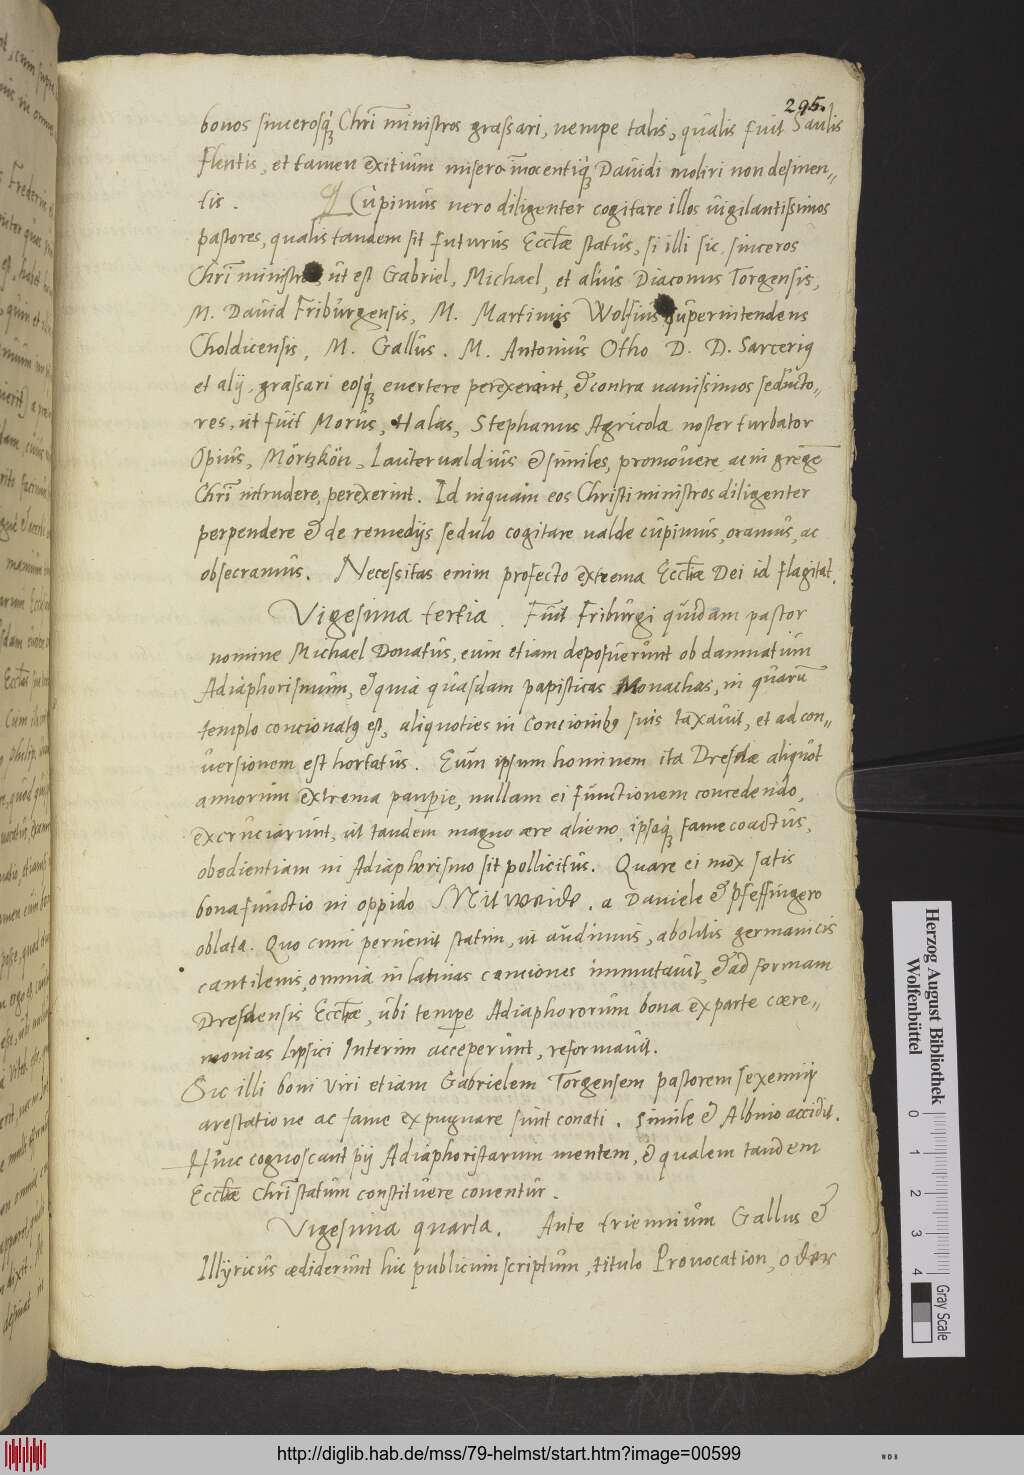 295.
bonos sincerosq́ꝫ Chrī ministros grassari, nempe talis, qualis fuit Saulis
flentis, et tamen exitium misero innocentiq́ꝫ Dauidi moliri non desinen„
tis. Cupimus uero diligenter cogitare illos uigilantissimos
pastores, qualis tandem sit futurus Eccl̄æ status, si illi sic sinceros
Chrī ministros ut est Gabriel, Michael, et alius Diaconus Torgensis,
M. Dauid Friburgensis, M. Martinus Wolfius superintendens
Choldicensis, M. Gallus. M. Antonius Otho D. D. Sarcerius
et alij, grassari eosq́ꝫ euertere perexerint, & contra uanissimos seducto„
res, ut fuit Morus, Halas, Stephanus Agricola noster turbator
Opius, Mörtzkön, Lauterualdius & similes, promouere ac in gregē
Chrī intrudere, perexerint. Id inquam eos Christi ministros diligenter
perpendere & de remedijs sedulo cogitare ualde cupimus, oramus, ac
obsecramus. Necessitas enim profecto extrema Eccl̄æ Dei id flagitat.
Vigesima tertia. Fuit Friburgi quidam pastor
nomine Michael Donatus, eum etiam deposuerunt ob damnatum
Adiaphorismum, & quia quasdam papisticas Monachas, in quarū
templo concionatus est, aliquoties in concionibus suis taxauit, et ad con„
uersionem est hortatus. Eum ipsum hominem ita Dresdæ aliquot
annorum extrema pauperie, nullam ei functionem concedendo,
excruciarunt, ut tandem magno ære alieno, ipsaq́ꝫ fame coactus,
obedientiam in Adiaphorismo sit pollicitus. Quare ei mox satis
bona functio in oppido Mitweide. a Daniele & Pfeffingero
oblata. Quo cum peruenit statim, ut audimus, abolitis germanicis
cantilenis, omnia in latinas canciones immutauit, & ad formam
Dresdensis Eccl̄æ, ubi tempore Adiaphororum bona ex parte cære„
monias Lipsici Interim acceperunt, reformauit.
Sic illi boni uiri etiam Gabrielem Torgensem pastorem sexennij
arestatione ac fame expugnare sunt conati. Simile & Albino accidit.
Hinc cognoscant pij Adiaphoristarum mentem, & qualem tandem
Eccl̄æ Chrī statum constituere conentur.
Vigesima quarta. Ante triennium Gallus &
Illyricus ædiderunt hic publicum scriptum, titulo Prouocation, oder
Herzog August Bibliothek
Wolfenbüttel
0 1 2 3 4
Gray Scale
http://diglib.hab.de/mss/79-helmst/start.htm?image=00599